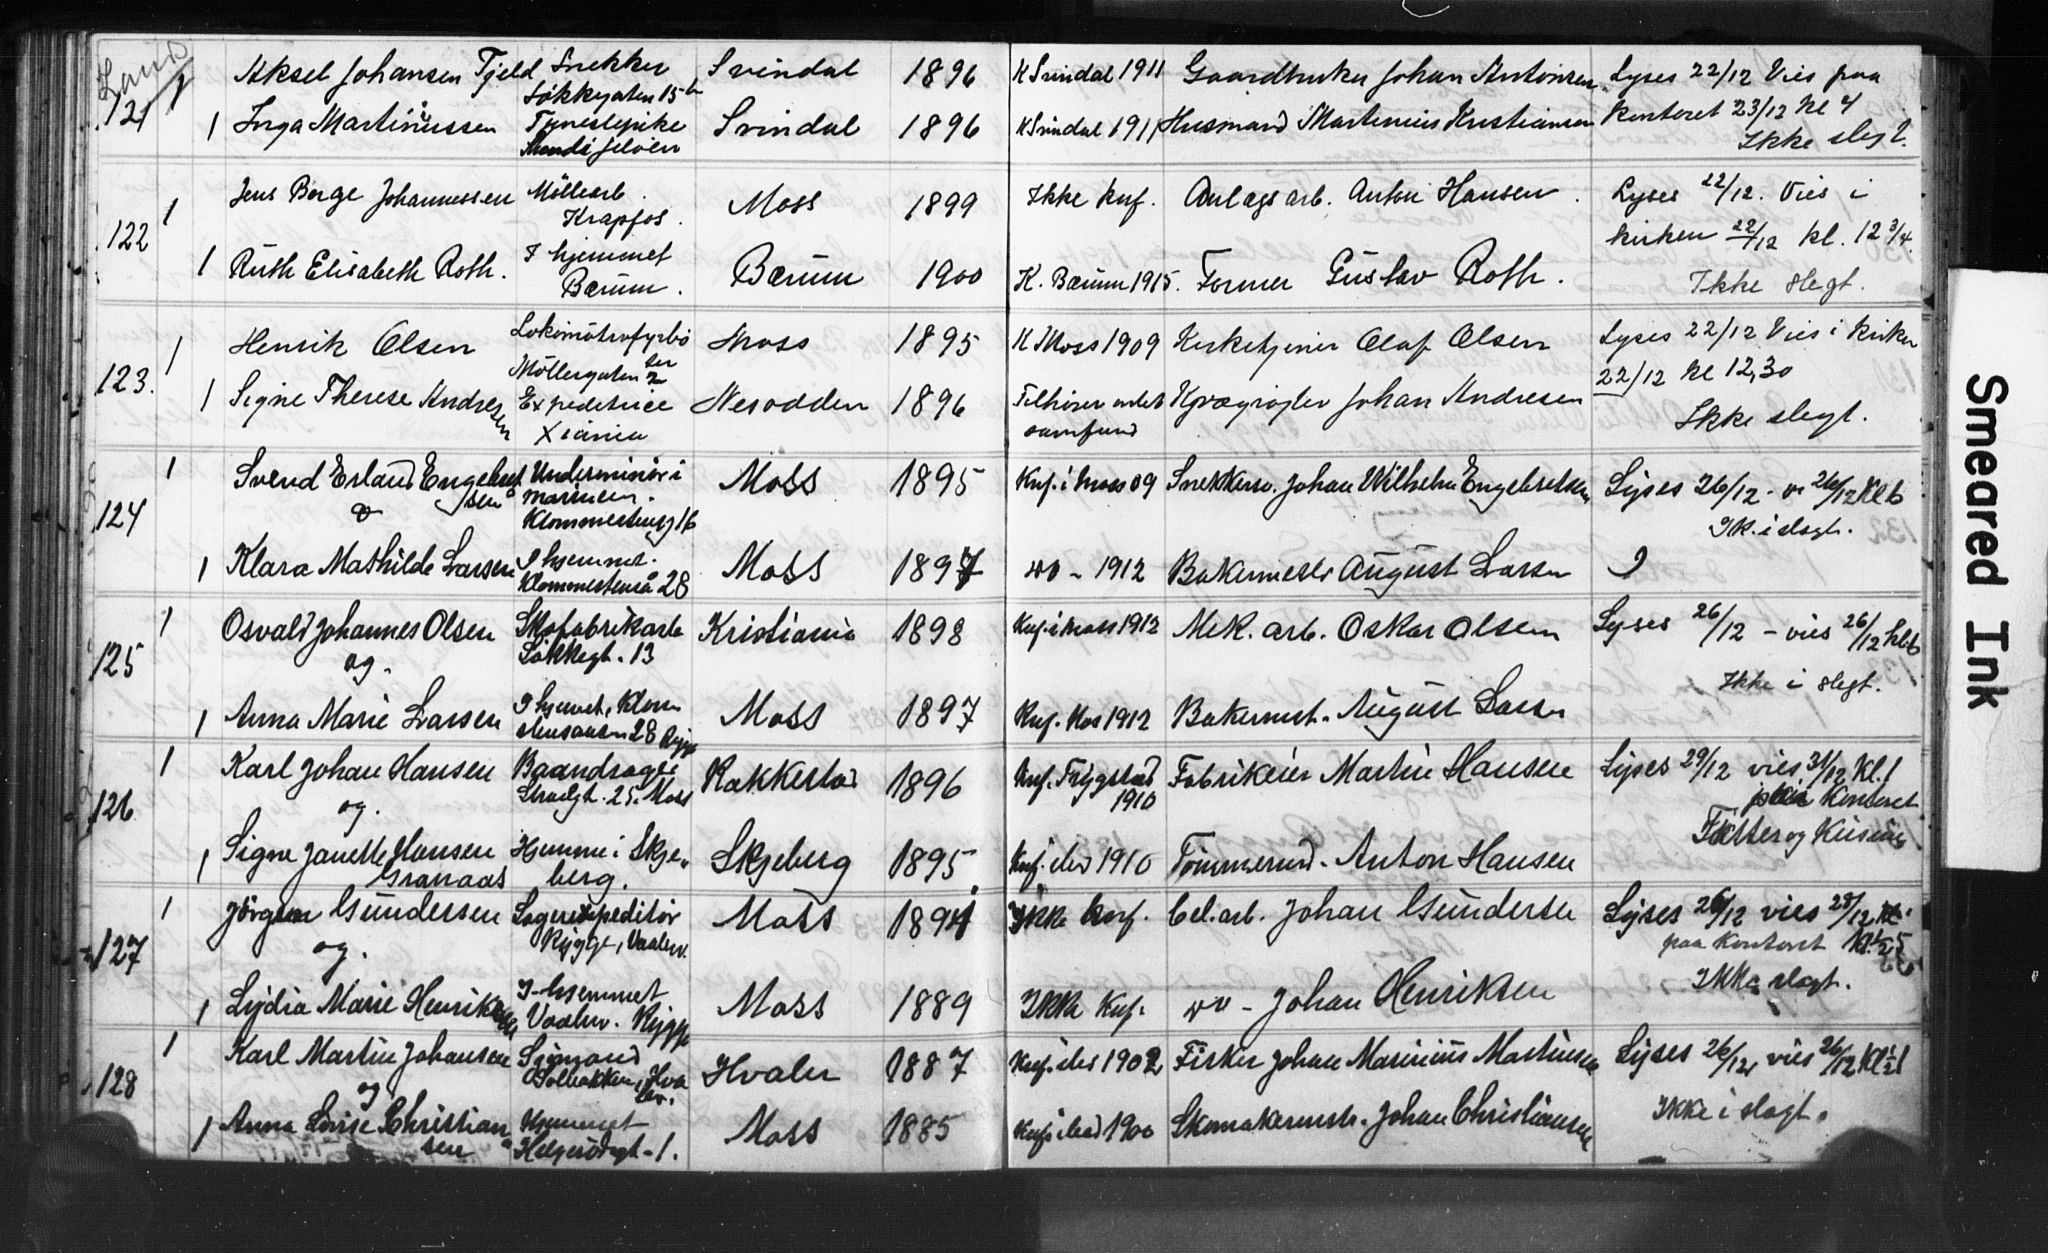 121 1 Aksel Johansen Fjeld Snekker Svindal 1896 K Svindal 1911 Gaardbruker Johan Antonsen Lyses 22/12 Vies paa
Søkkegaten 15 b kontoret 23/12 kl 4
1 Inga Martinussen Tjenestepike Svindal 1896 K Svindal 1911 Husmand Martinius Kristiansen Ikke slegt.
Jeløen
122 1 Jens Borge Johannessen Møllearb. Moss 1899 Ikke knf. Anlagsarb. Anton Hansen. Lyses 22/12. Vies i
Krapfos. kirken 22/12 kl. 12 3/4.
1 Ruth Elisabeth Roth. I hjemmet Bærum 1900 K. Bærum 1915. Former Gustav Roth. Ikke slegt.
Bærum.
123. 1 Henrik Olsen Lokomotivfyrbø Moss 1895 K Moss 1909 Kirketjener Olaf Olsen Lyses 22/12 Vies i kirken
Møllergaten ter 22/12 kl 12,30
1 Signe Therese Andresen Expeditrice Nesodden 1896 Tilhører andet Kvægrøgter Johan Andresen Ikke slegt.
Xiania samfund
124 1 Svend Erland Engebretsen Underminør i Moss 1895 Knf. i Moss 09 Snekkersv. Johan Wilhelm Engebretsen Lyses 26/12 - v 26/12 Kl 6
& marinen. Ik. i slegt.
16
1 Klara Mathilde Larsen I hjemmet. Moss 1897 do - 1912 Bakermestr August Larsen
28
125 1 Osvald Johannes Olsen Skofabrikarb Kristiania 1898 Knf. i Moss 1912 Mek. arb. Oskar Olsen Lyses 26/12 - vies 26/12 kl. 6
og. Søkkegt. 13 Ikke i slegt.
1 Anna Marie Larsen I hjemmet, Moss 1897 Knf. Mos 1912 Bakermst. August Larsen
28 Rygge
126 1 Karl Johan Hansen Baandsager Rakkestad 1896 Knf. Trygstad Fabrikeier Martin Hansen Lyses 29/12 vies 31/12 Kl. 1
og. 25. Moss 1910 paa Kontoret
Fætter og Kusine
1 Signe Janette Hansen Hjemme i Skje- Skjeberg 1895 Knf. i 1910 Tømmermd. Anton Hansen
Granaas berg.
127 1 Jørgen Gundersen Lagerexpeditør Moss 1894 Ikke knf. Cel. arb. Johan Gundersen Lyses 26/12 vies 28/12
og. Rygge, Vaalerv. paa Kontoret Kl.
Ikke slegt.
1 Lydia Marie Henriksen I hjemmet Moss 1889 Ikke Knf. do - Johan Henriksen
Vaalerv. Rygge
128 1 Karl Martin Johansen Sjømand Hvaler 1887 Knf. i 1902 Fisker Johan Marinius Martinsen Lyses 26/12, vies 26/12
og Hvaler. Ikke i slegt.
1 Anna Lovise Christiansen Hjemmet Moss 1885 Knf. i 1900 Skomakermstr. Johan Christiansen
Helgerødgt - 1.
Smeared Ink